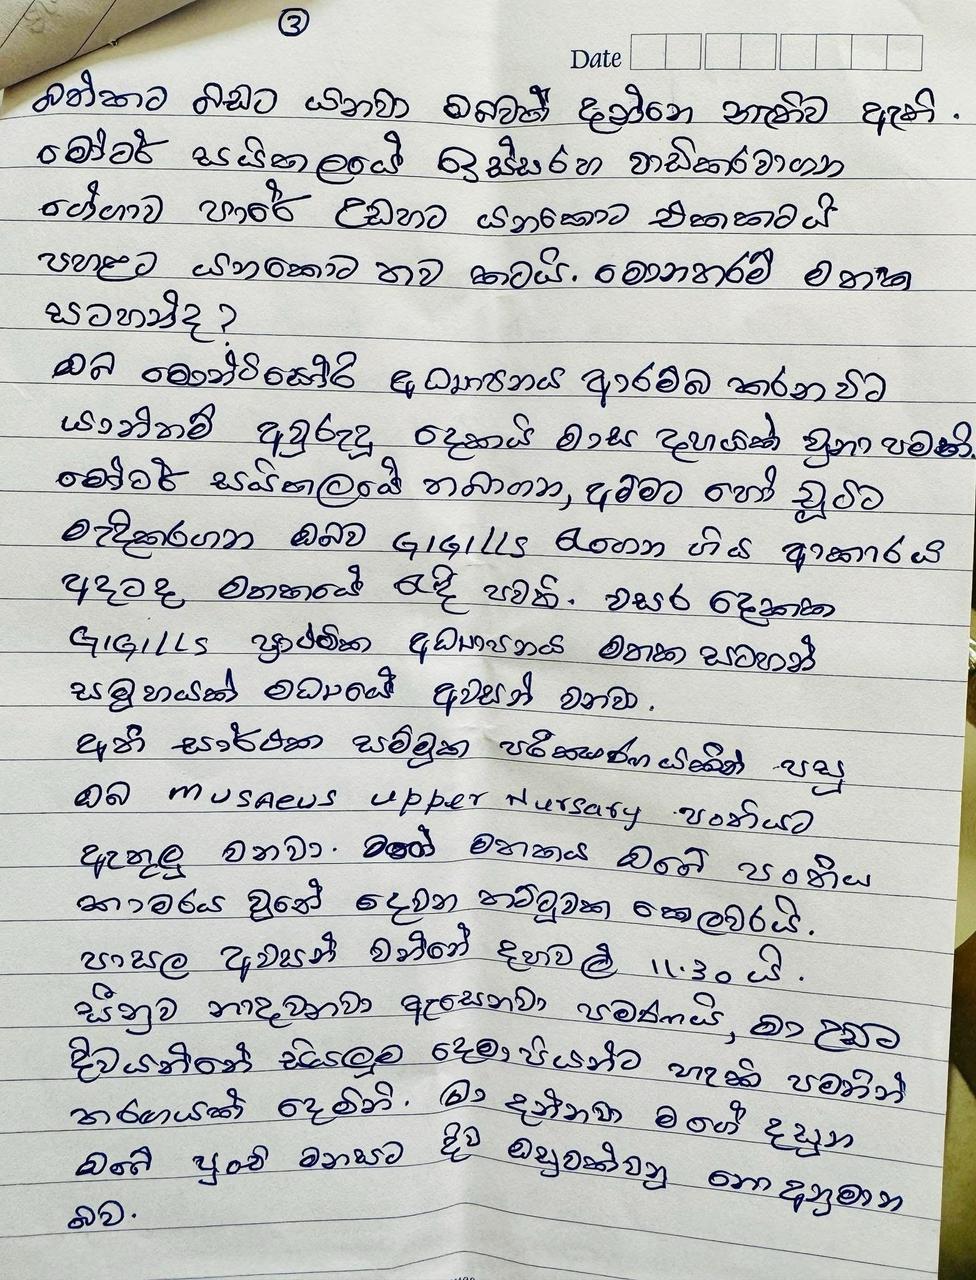 ③
Date
බත්කට බඩට යනවා ඔබවත් දන්නෙ නැතිව ඇති.
මෝටර් සයිකලයේ ඉස්සරහ වාඩිකරවාගන
ගේගාව පාරේ උඩහට යනකොට එකකටයි
පහළට යනකොට තව කටයි. මොනතරම් මතක
සටහන්ද?
ඔබ මොන්ටිසෝරි අධ්‍යාපනය ආරම්බ කරන විට
යාන්තම් අවුරුදු දෙකයි මාස දහයක් වුනා පමණි.
මෝටර් සයිකලයේ තබාගන, අම්මට හෝ චූටිට
මැදිකරගන ඔබව GIGILLS රැගෙන ගිය ආකාරය
අදටද මතකයේ රැඳී පවතී. වසර දෙකක
GIGILLS ප්‍රාථමික අධ්‍යාපනය මතක සටහන්
සමූහයක් මධ්‍යයේ අවසන් වනවා.
ඇති සාර්ථක සම්මුක පරීක්ෂණයකින් පසු
ඔබ musaeus upper Nursary පංතියට
ඇතුලු වනවා. මගේ මතකය ඔබේ පංතිය
කාමරය වුනේ දෙවන තට්ටුවක කෙලවරයි.
පාසල අවසන් වන්නේ දහවල් 11.30 යි.
සීනුව නාදවනවා ඇසෙනවා පමණයි, මා උඩට
දිවයන්නේ සියලුම දෙමාපියන්ට හැකි පමනින්
තරගයක් දෙමිනි. මා දන්නවා මගේ දසුන
ඔබේ පුංචි මනසට දිව ඔසුවක්වනු නොඅනුමාන
බව.